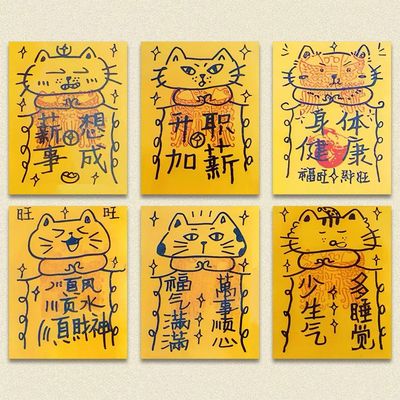 薪想
事成
升职
加薪
身体
健康
福旺 财旺
旺 旺
顺风
顺水
顺財神
萬事顺心
福气满满
多睡觉
少生气